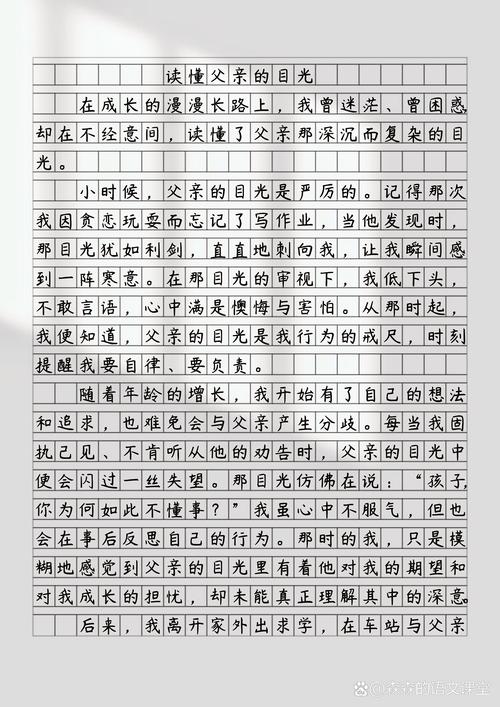 读懂父亲的目光
在成长的漫漫长路上，我曾迷茫、曾困惑，
却在不经意间，读懂了父亲那深沉而复杂的目
光。
小时候，父亲的目光是严厉的。记得那次
我因贪恋玩耍而忘记了写作业，当他发现时，
那目光犹如利剑，直直地刺向我，让我瞬间感
到一阵寒意。在那目光的审视下，我低下头，
不敢言语，心中满是懊悔与害怕。从那时起，
我便知道，父亲的目光是我行为的戒尺，时刻
提醒我要自律、要负责。
随着年龄的增长，我开始有了自己的想法
和追求，也难免会与父亲产生分歧。每当我固
执己见、不肯听从他的劝告时，父亲的目光中
便会闪过一丝失望。那目光仿佛在说：“孩子，
你为何如此不懂事？”我虽心中不服气，但也
会在事后反思自己的行为。那时的我，只是模
糊地感觉到父亲的目光里有着他对我的期望和
对我成长的担忧，却未能真正理解其中的深意。
后来，我离开家外出求学，在车站与父亲
森森的语文课堂